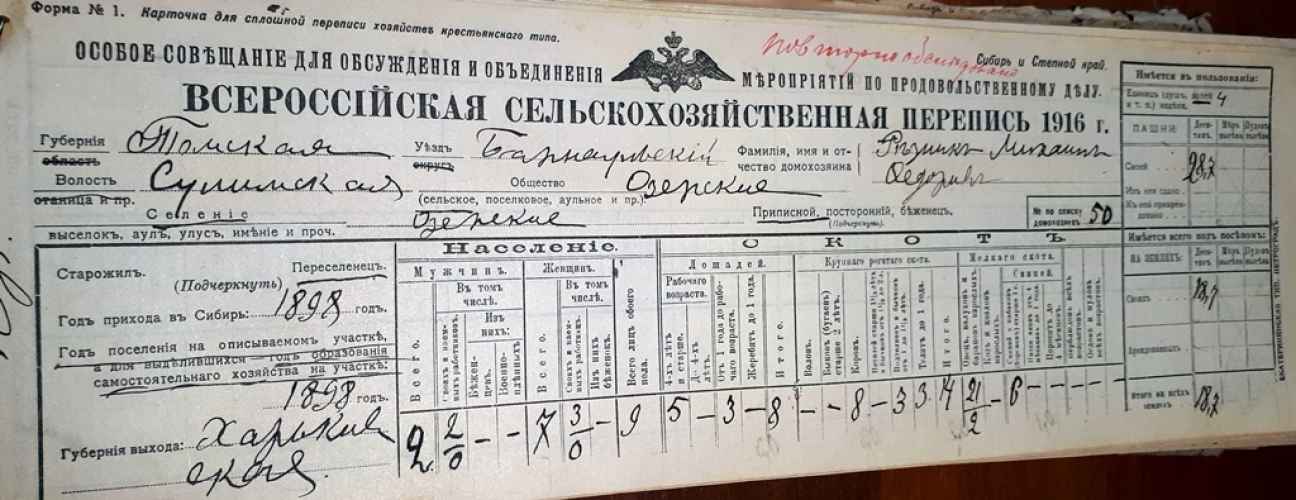 Форма № 1. Карточка для сплошной переписи хозяйствъ крестьянскаго типа.
Повторно обслѣдовано
Сибирь и Степной край.
ОСОБОЕ СОВѢЩАНІЕ ДЛЯ ОБСУЖДЕНІЯ И ОБЪЕДИНЕНІЯ МѢРОПРІЯТІЙ ПО ПРОДОВОЛЬСТВЕННОМУ ДѢЛУ.
ВСЕРОССІЙСКАЯ СЕЛЬСКОХОЗЯЙСТВЕННАЯ ПЕРЕПИСЬ 1916 г.
Губернія Томская Уѣздъ Барнаульскій Фамилія, имя и от- Рѣзникъ Михаилъ
область округъ чество домохозяина Ѳедоровъ
Волость Сулимская Общество Озерские
станица и пр. (сельское, поселковое, аульное и пр.)
Селеніе Озерские Приписной, посторонній, бѣженец.
выселокъ, аулъ, улусъ, имѣніе и проч. (Подчеркнуть).
№ по списку домохозяевъ 50
Старожилъ. Переселенецъ.
(Подчеркнуть)
Годъ прихода въ Сибирь: 1898 годъ.
Годъ поселенія на описываемомъ участкѣ,
а для выдѣлившихся—годъ образованія
самостоятельнаго хозяйства на участкѣ:
1898 годъ.
Губернія выхода: Харьков
ская
Населеніе.
Мужчинъ. Женщинъ.
Всего.
Въ томъ числѣ.
Своихъ и наемныхъ работниковъ.
Изъ нихъ:
Бѣженцевъ.
Военноплѣнныхъ.
Всего.
Въ томъ числѣ.
Изъ нихъ бѣженокъ.
Всего лицъ обоего пола.
2 2/0 - - 7 3/0 - 9
СКОТЪ
Лошадей. Крупнаго рогатаго скота. Мелкаго скота.
Рабочаго возраста.
4-хъ лѣтъ и старше.
До 4-хъ лѣтъ.
Отъ 1 года до рабочаго возраста.
Жеребятъ до 1 года.
Итого.
Воловъ.
Быковъ (бугаевъ) старше 2 лѣтъ.
Коровъ.
Телятъ до 1 года.
Итого.
Свиней.
5 - 3 - 8 - - 8 - 3 3 14 21/2 - 6 - - - -
Имѣется въ пользованіи:
4
ПАШНИ:
Своей 28,7
Имѣется всего подъ посѣвомъ:
НА ЗЕМЛЯХЪ:
Своихъ 18,7
Арендованныхъ
Итого на всѣхъ земляхъ 18,7
ЕКАТЕРИНИНСКАЯ ТИП. ПЕТРОГРАДЪ.